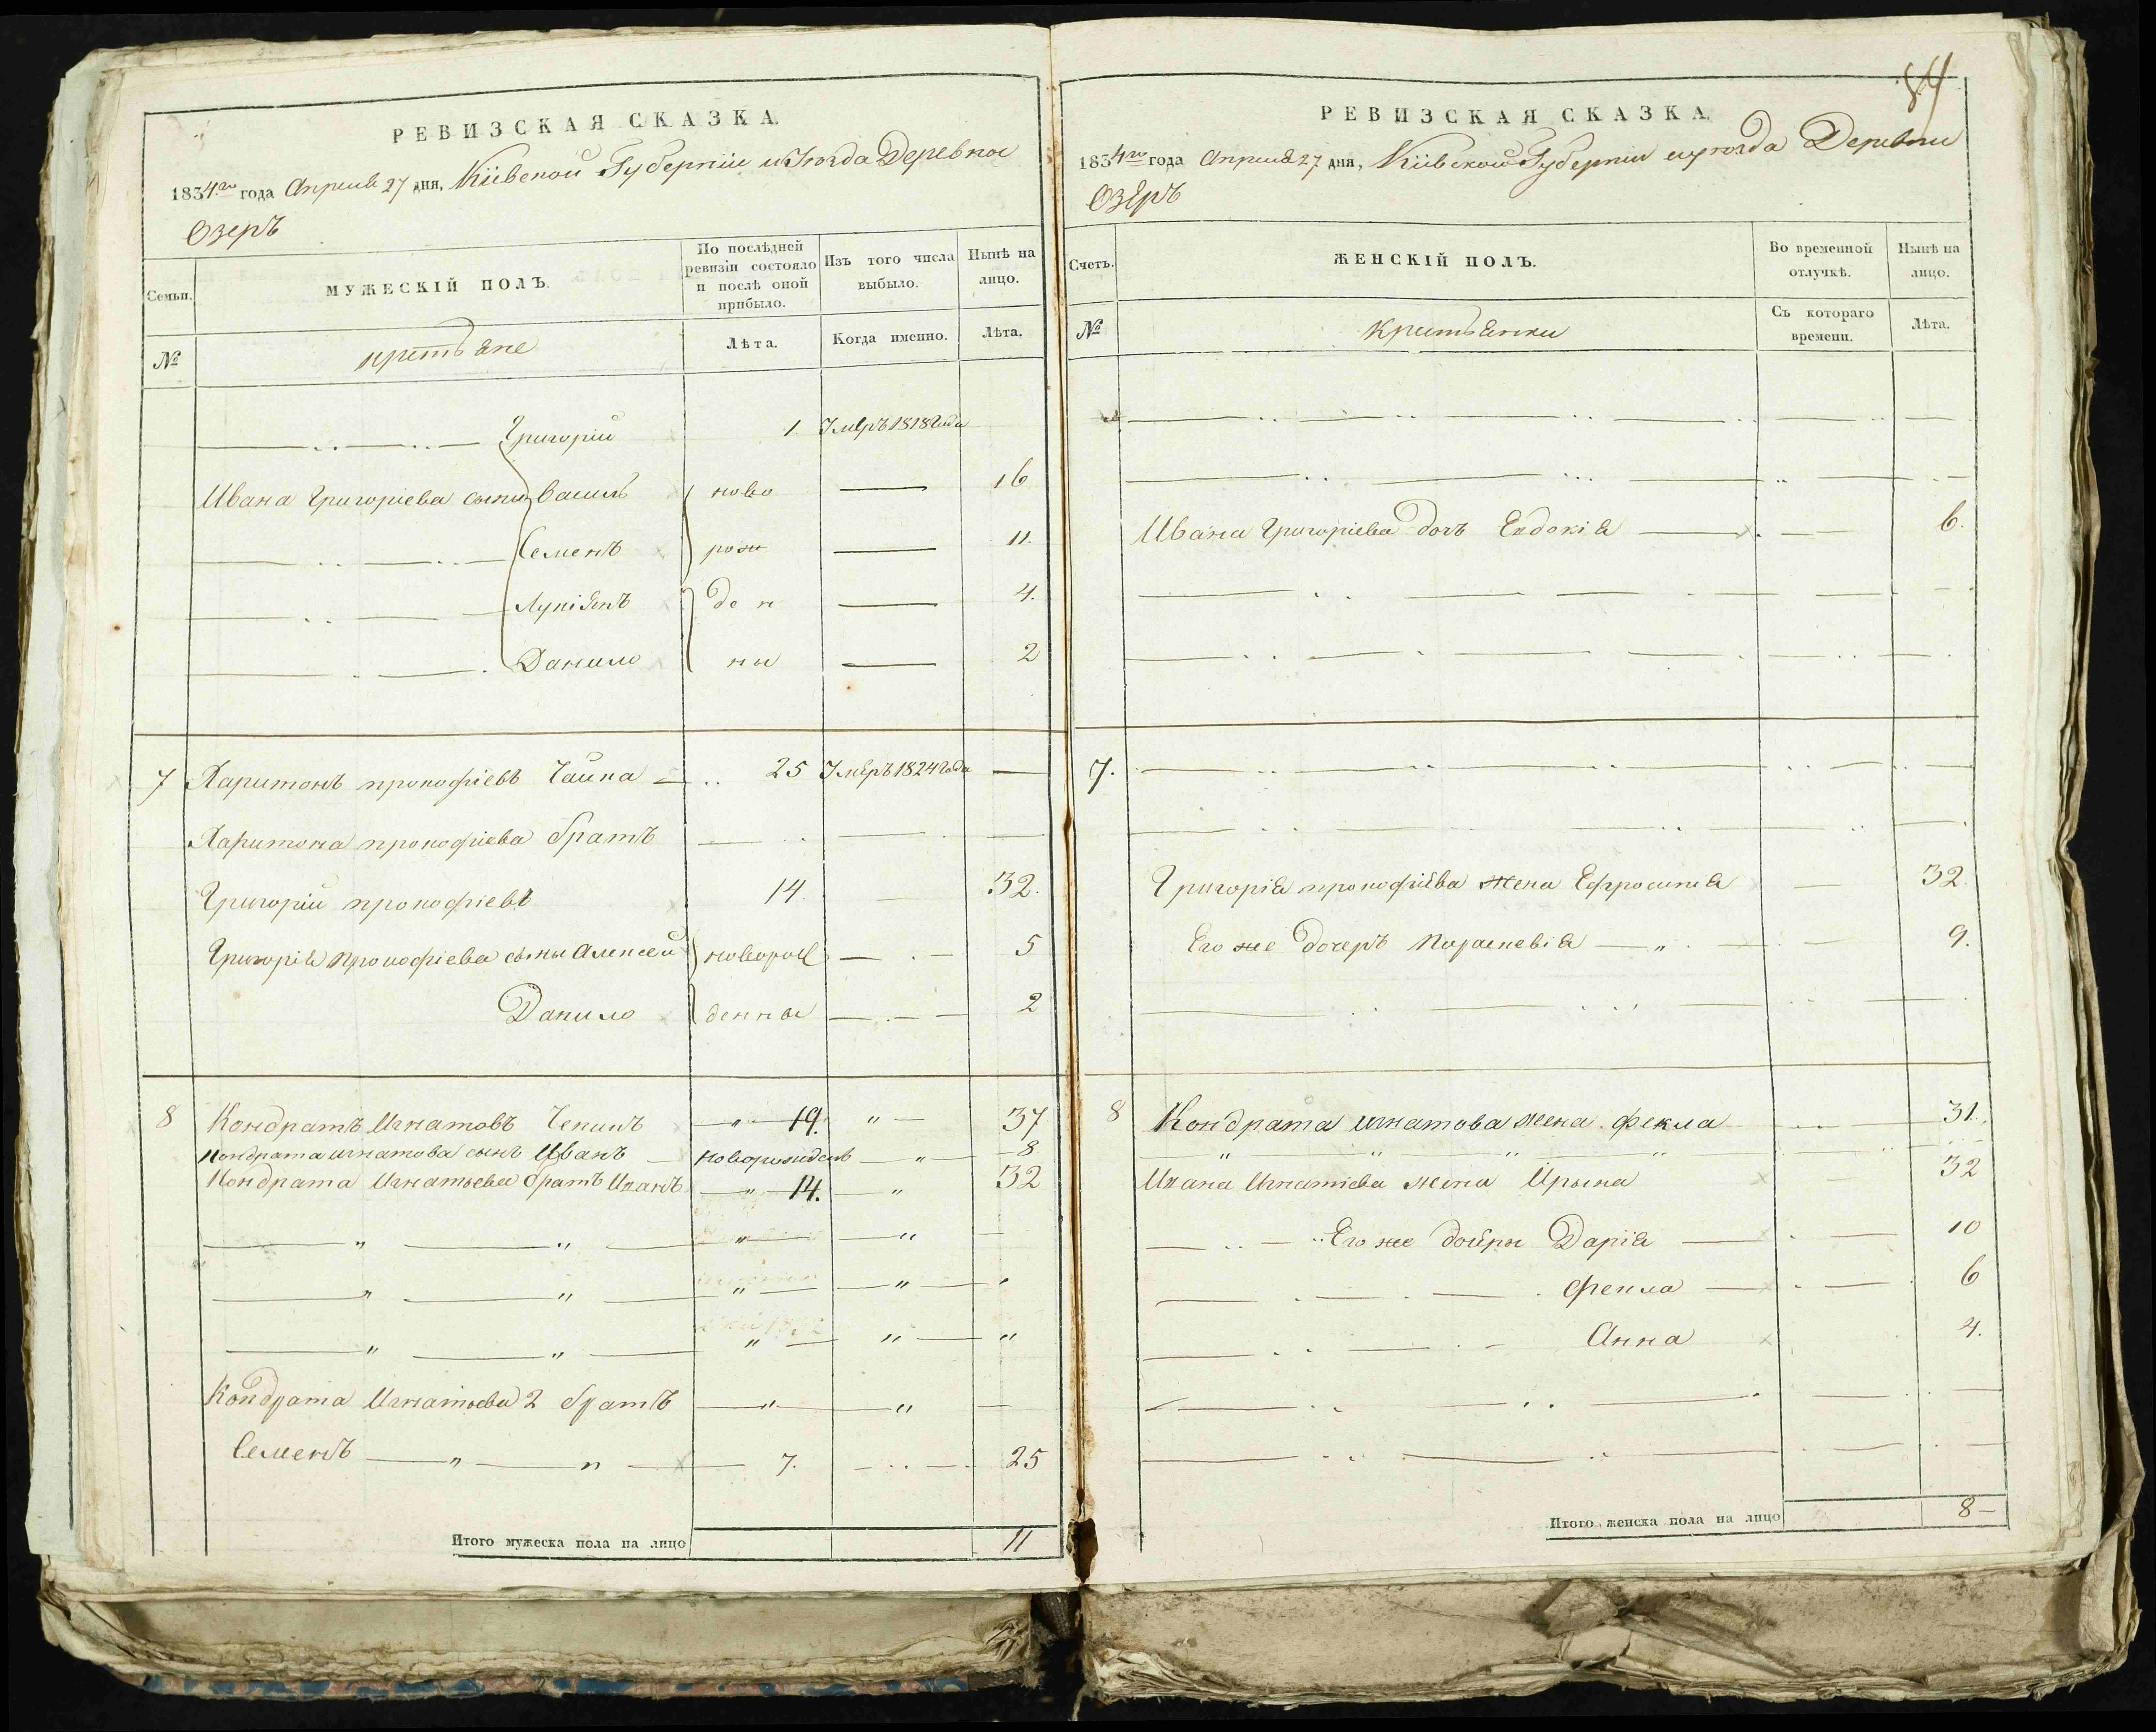 РЕВИЗСКАЯ СКАЗКА
1834го года Апреля 27 дня, Кіевской Губерніи и Уезда Деревни
Озеръ
Семьи.
МУЖЕСКІЙ ПОЛЪ.
По послѣдней ревизіи состояло и послѣ оной прибыло.
Изъ того числа выбыло.
Нынѣ на лицо.
№
Лѣта.
Когда именно.
Лѣта.
Григорій 1. Умеръ 1818 года
Ивана Григоріева сыны Василь ново 16
Семенъ рож 11.
Лукіянъ ден 4.
Данило ны 2
7 Харитонъ прокофіевъ Чайка 25 Умеръ 1824 года
Харитона прокофіева братъ
Григорій прокофіевъ 14. 32.
Григорія прокофіева сыны Алексей новорож 5
Данило денны 2
8 Кондратъ Игнатовъ 19. 37
Кондрата игнатова сынъ Иванъ новорожденъ 8
Кондрата Игнатьева братъ Иванъ 14. 32
Кондрата Игнатьева 2 братъ
Семенъ 7. 25
Итого мужеска пола на лицо 11
84
РЕВИЗСКАЯ СКАЗКА
1834го года Апреля 27 дня, Кіевской Губерніи и уезда Деревни
Озеръ
Счетъ.
ЖЕНСКІЙ ПОЛЪ.
Во временной отлучкѣ.
Нынѣ на лицо.
№
Съ котораго времени.
Лѣта.
Ивана Григоріева дочъ Евдокія 6.
7.
Григорія прокофіева жена Ефросинія 32.
Его же дочеръ Параскевія 9.
8 Кондрата игнатова жена фекла 31.
Ивана Игнатіева жена Ирына 32
Его же дочеры Дарія 10
фекла 6
Анна 4.
Итого женска пола на лицо 8